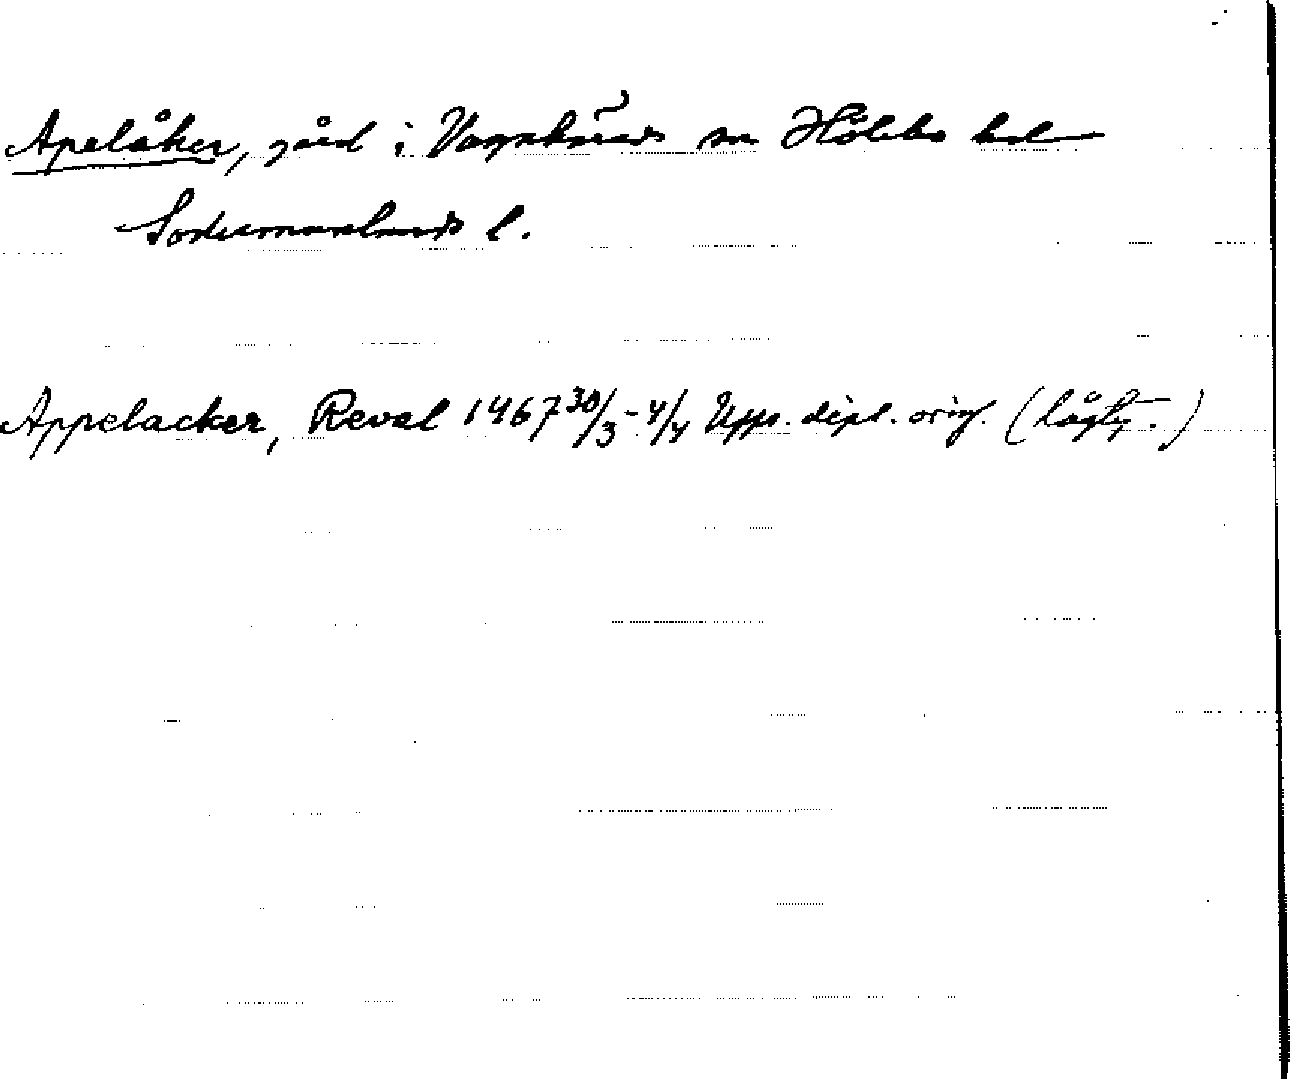 Apelåker, gård i Vagnhärads sn Hölebo hd
Södermanlands l.
Appelacker, Reval 1467 30/3-4/4 Upps. dipl. orig. (lågty.)